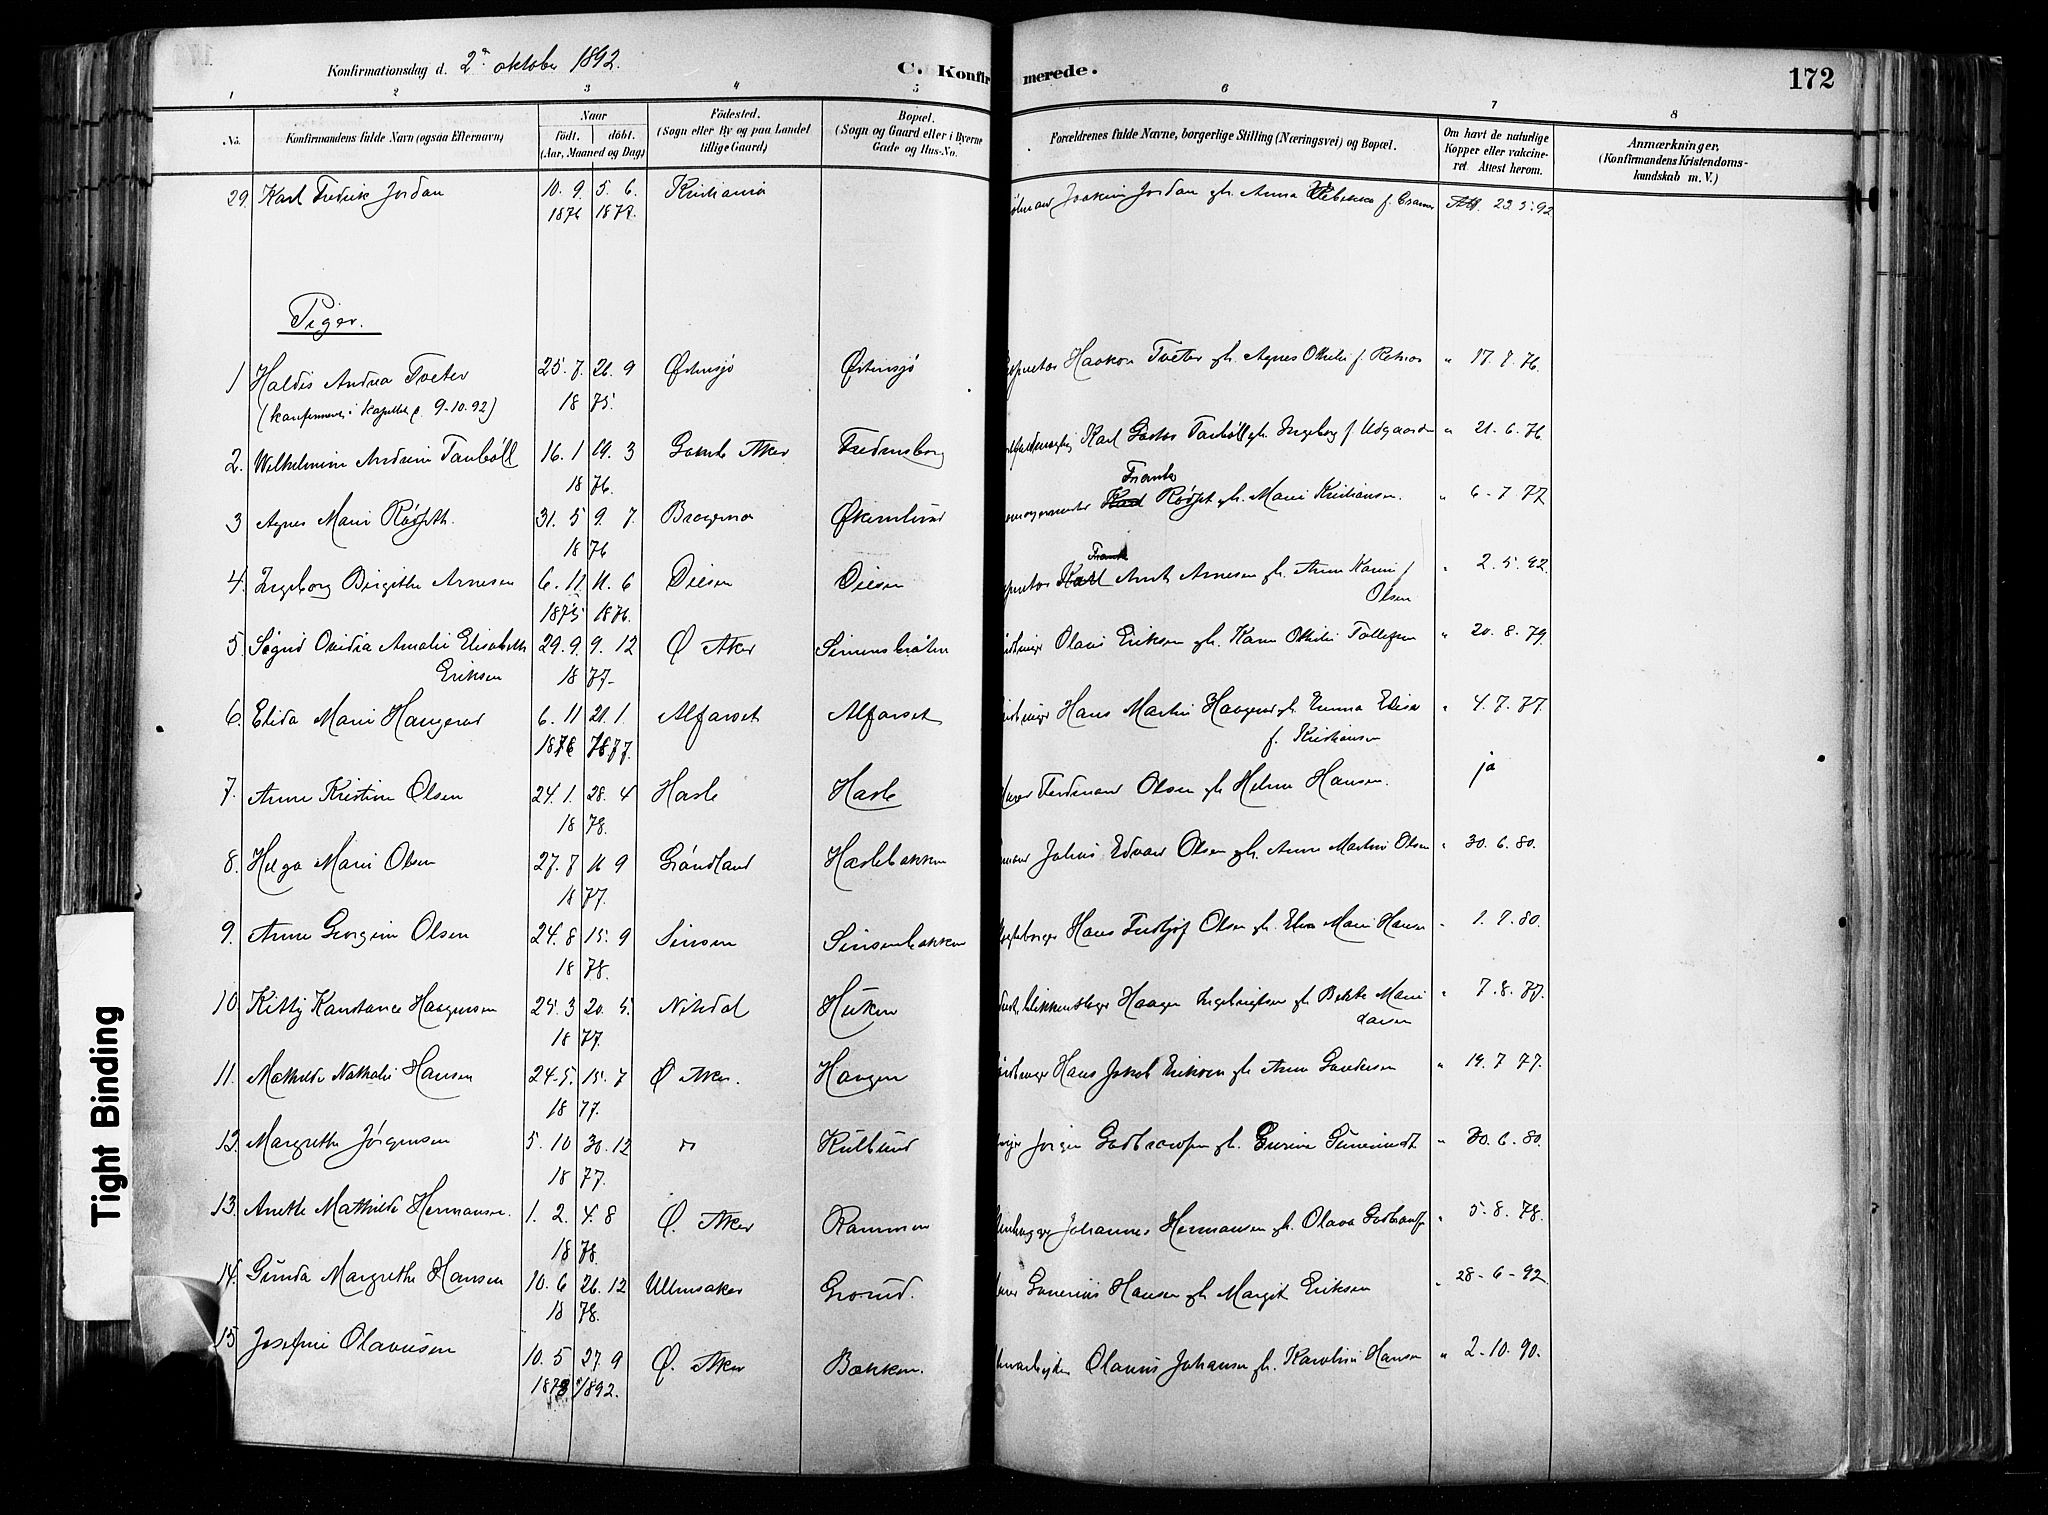 Konfirmationsdag d. 2den oktober 1892.
C. Konfirmerede.
172
1 2 3 4 5 6 7 8
No.
Konfirmandens fulde Navn (ogsaa Efternavn)
Naar
født. døbt.
(Aar, Maaned og Dag)
Födested.
(Sogn eller By og paa Landet
tillige Gaard)
Bopæl.
(Sogn og Gaard eller i Byerne
Gade og Hus-No.
Forældrenes fulde Navne, borgerlige Stilling (Næringsvei) og Bopæl.
Om havt de naturlige
Kopper eller vakcine-
ret Attest herom.
Anmærkninger,
(Konfirmandens Kristendoms-
kundskab m. V.)
29. Karl Fredrik Jordan 10. 9. 5. 6. Kristiania Joakim Jordan gh. Anna f. Cramer Att. 23.5.92
Piger.
1 Haldis Andrea Tveter 25. 7. 26. 9 Østensjø Østensjø Haakon Tveter gh. Agnes Othilie f. " 17. 7. 76.
(konfirmeres i Kapellet d. 9-10.92) 18 75.
2. Wilhelmine Andrine Tanbøll 16. 1 19. 3 Gamle Aker Fredensborg Karl Gustav Tanbøll gh. Ingeborg f. Udgaarden " 21. 6. 76.
18 76.
Frantz
3 Agnes Marie 31. 5 9. 7. Bragernes Økernlund gh. Marie Kristiansen. " 6-7.77
18 76
4. Ingeborg Birgithe Arnesen 6. 11 11. 6 Disen Disen Arnt Arnesen gh. Anne Karine f. " 2. 5. 92.
1875 1876. Olsen
5. Signe Ovidia Amalie Elisabeth 29. 9. 9. 12 Ø Aker Simensbråten Olaus Eriksen gh. Karen Othilie Tollefsen " 20. 8. 79
Eriksen 18 77-
6. Elida Marie Haugerud 6. 11 21. 1. Alfarset Alfarset Hans Martin Haugerud gh. Emma Elise " 4. 7. 77.
1876 1877. f. Kristiansen
7. Anne Kristine Olsen 24. 1. 28. 4 Hasle Hasle Ferdinand Olsen gh. Helene Hansen. ja
18 78.
8. Helga Marie Olsen 27. 7 16 9 Grønland Haslebakken Julius Edvard Olsen gh. Anne Martine Olsen " 30. 6. 80.
18 77.
9. Anne Georgine Olsen 24. 8 15. 9 Sinsen Sinsenbakken Hans Fridtjof Olsen gh. Elen Marie Hansen " 1. 7. 80.
18 78.
10. Kitty Konstance Haagensen 25. 3 20. 5. Nitedal Huken Haagen Ingebrigtsen gh. Berthe Marie " 7. 8. 77.
18 77. Larsen
11. Mathilde Nathalie Hansen 24-5. 15. 7 Ø Aker. Haugen Hans Jakob Eriksen gh. Anne Gundersen " 19. 7 77.
18 77.
12. Margrethe Jørgensen 5. 10 30. 12 " Kulbund Jørgen Gudbrandsen gh. " 30. 6. 80.
18 77.
13. Anette Mathilde Hermansen. 1. 2. 4. 8 Ø. Aker Rammen Johannes Hermansen gh. Olava Gudbrandsen " 5. 8. 78.
18 78.
14. Gunda Margrethe Hansen 10. 6 26. 12 Ullensaker Grorud. Hansen gh. Margit Eriksen " 28-6-92
18 78.
15 Josefine Olavesen 10. 5 27. 9 Ø. Aker Bækken. Olaus Johansen gh. Karoline Hansen " 2-10. 90.
1878 1892.
Tight Binding